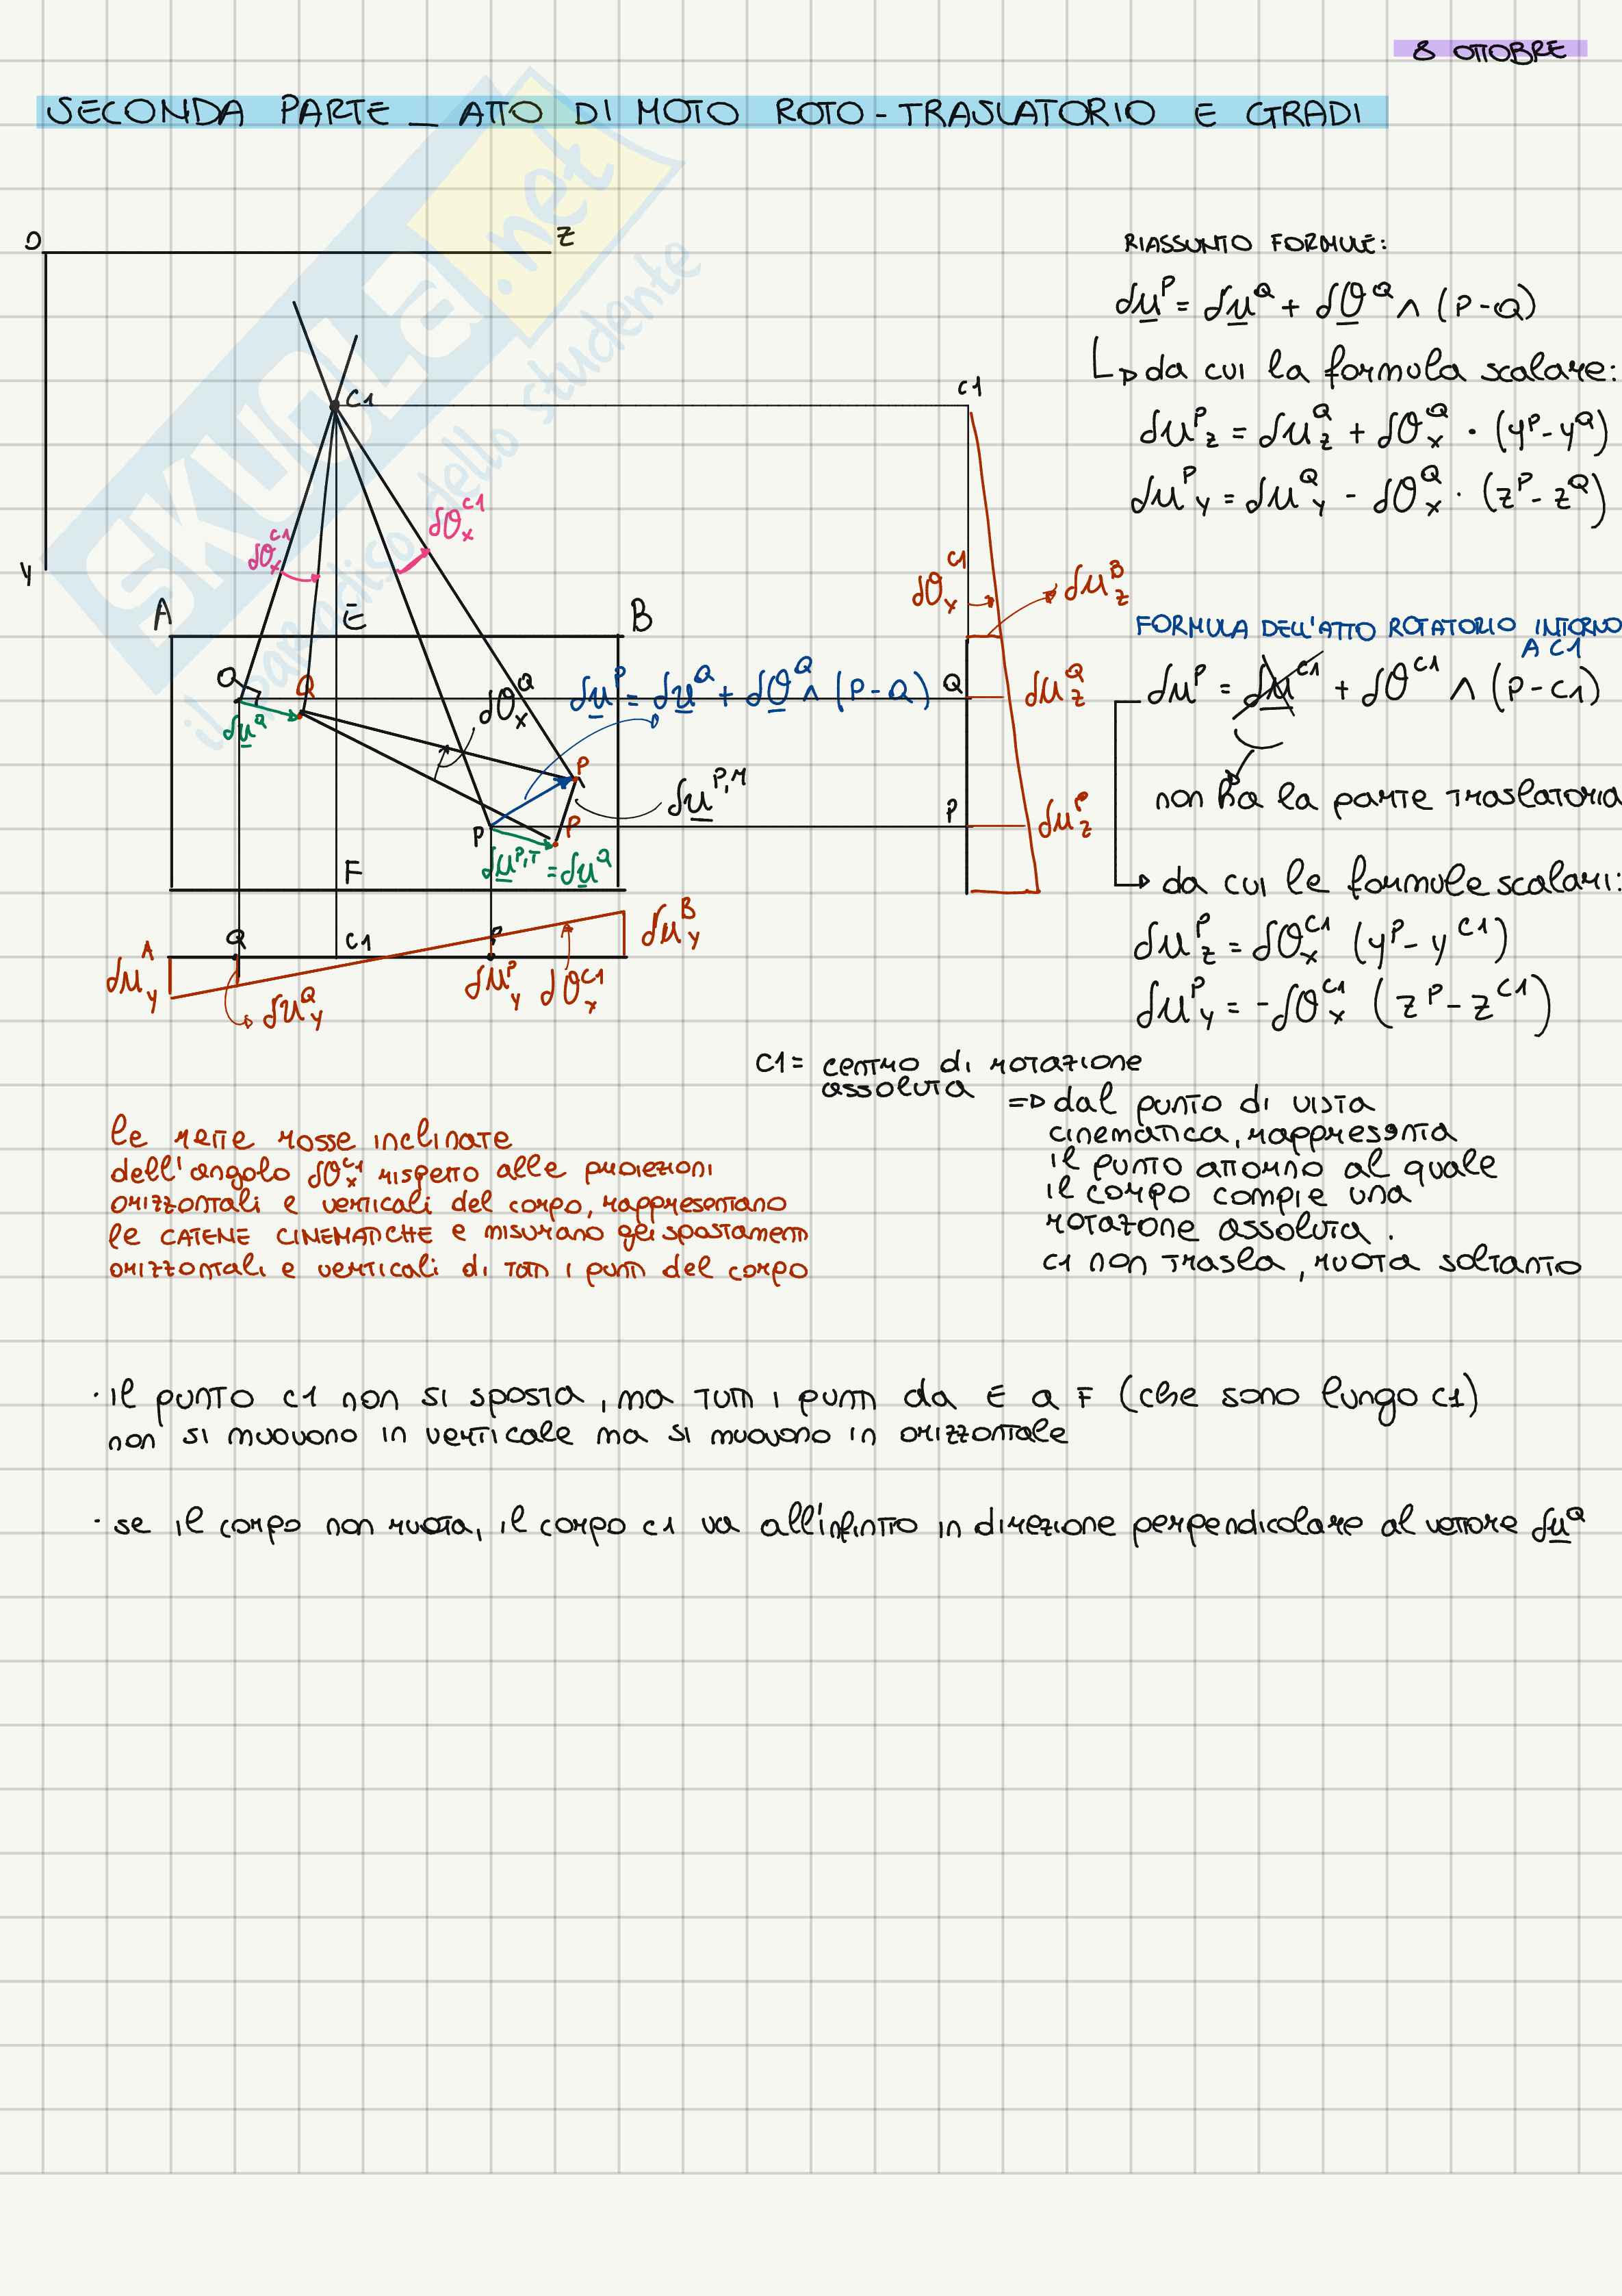 8 OTTOBRE
SECONDA PARTE _ ATTO DI MOTO ROTO-TRASLATORIO E GRADI
SKUOLA.net
il paradiso dello studente
O
Z
Y
C1
δθ_x^C1
δθ_x^C1
A
E
B
Q
Q
δu^Q
δθ_x^Q
δu^P = δu^Q + δθ^Q ∧ (P-Q)
P
P
P
δu^P,R
δu^P,T = δu^Q
F
C1
δθ_x^C1
δu_z^B
Q
δu_z^Q
P
δu_z^P
Q
C1
P
δu_y^A
δu_y^Q
δu_y^P
δθ_x^C1
δu_y^B
RIASSUNTO FORMULE:
δu^P = δu^Q + δθ^Q ∧ (P-Q)
da cui la formula scalare:
δu_z^P = δu_z^Q + δθ_x^Q · (y^P - y^Q)
δu_y^P = δu_y^Q - δθ_x^Q · (z^P - z^Q)
FORMULA DELL'ATTO ROTATORIO INTORNO
A C1
δu^P = δu^C1 + δθ^C1 ∧ (P-C1)
non ha la parte traslatoria
da cui le formule scalari:
δu_z^P = δθ_x^C1 (y^P - y^C1)
δu_y^P = -δθ_x^C1 (z^P - z^C1)
C1 = centro di rotazione
assoluta
=> dal punto di vista
cinematica, rappresenta
il punto attorno al quale
il corpo compie una
rotazone assoluta.
C1 non trasla, ruota soltanto
le rette rosse inclinate
dell'angolo δθ_x^C1 rispetto alle proiezioni
orizzontali e verticali del corpo, rappresentano
le CATENE CINEMATICHE e misurano gli spostamenti
orizzontali e verticali di tutti i punti del corpo
· il punto C1 non si sposta, ma tutti i punti da E a F (che sono lungo C1)
non si muovono in verticale ma si muovono in orizzontale
· se il corpo non ruota, il corpo C1 va all'infinito in direzione perpendicolare al vettore δu^Q